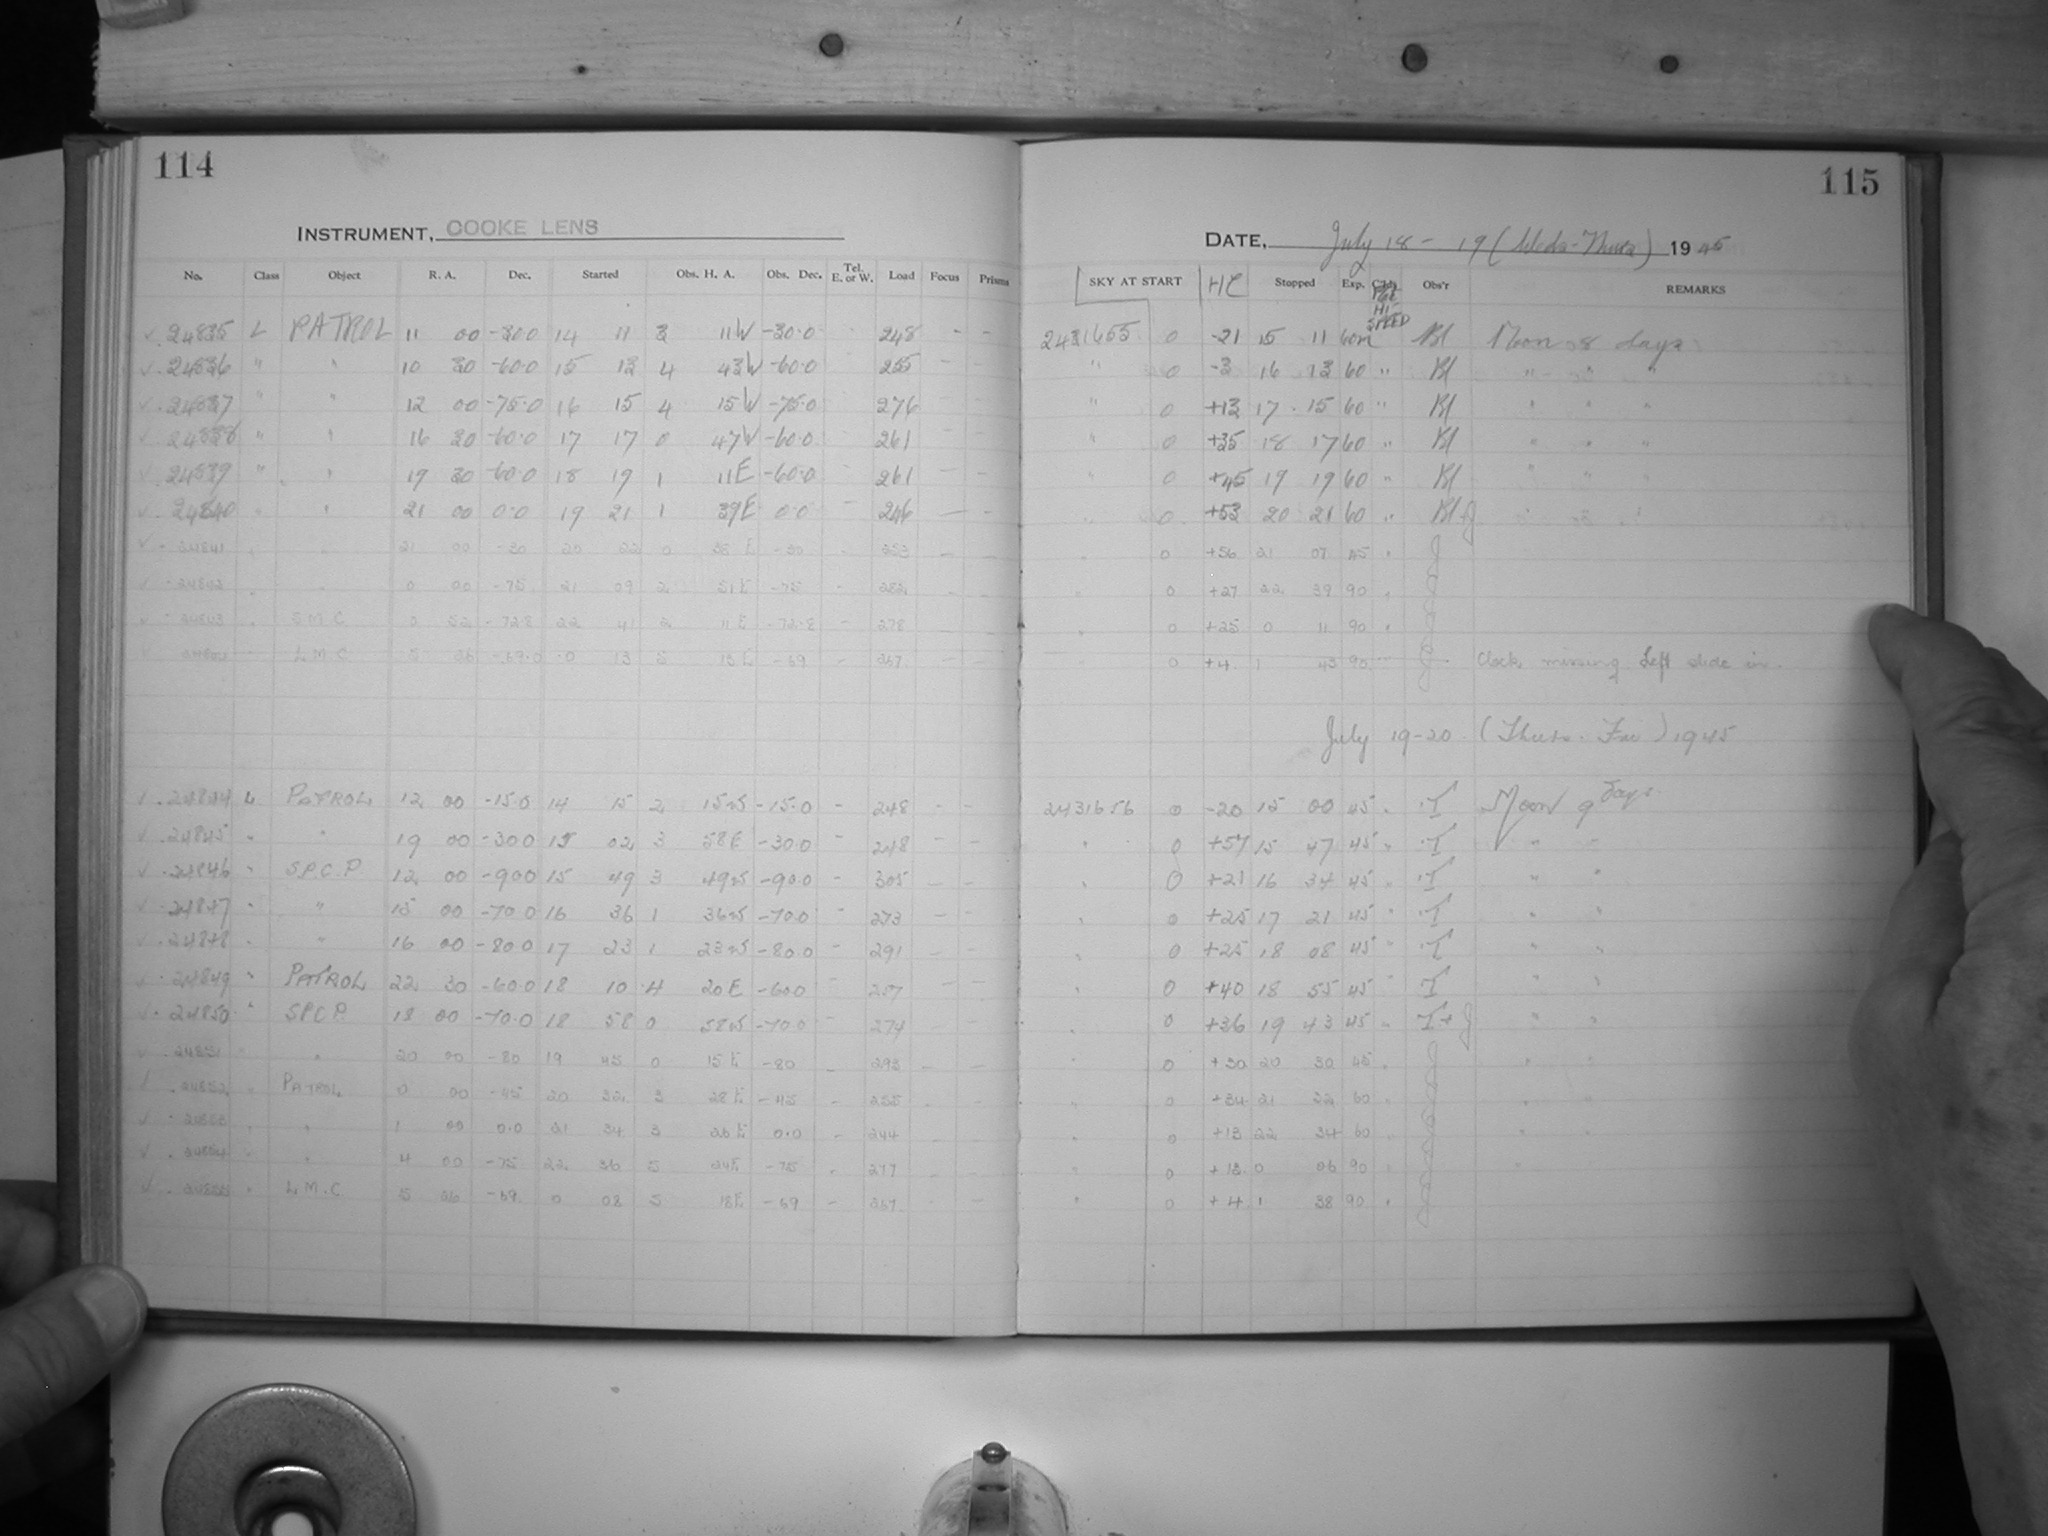 114
115
INSTRUMENT, COOKE LENS
DATE, July 18 - 19 (Weds-Thurs) 1945
No. Class Object R. A. Dec. Started Obs. H. A. Obs. Dec. Tel. E. or W. Load Focus Prisms SKY AT START HC Stopped Exp. HI SPEED Obs'r REMARKS
24835 L PATROL 11 00 -30.0 14 11 3 11W -30.0 248 - - 2431655 0 -21 15 11 60m Bl Moon 8 days
24836 " " 10 30 -60.0 15 13 4 43W -60.0 255 - - " 0 -3 16 13 60 " Bl " "
24837 " " 12 00 -75.0 16 15 4 15W -75.0 276 - - " 0 +13 17 15 60 " Bl " " "
24838 " " 16 30 -60.0 17 17 0 47W -60.0 261 - - " 0 +35 18 17 60 " Bl " " "
24839 " " 19 30 -60.0 18 19 1 11E -60.0 261 - - " 0 +45 19 19 60 " Bl " " "
24840 " " 21 00 0.0 19 21 1 39E 0.0 246 - - " 0 +53 20 21 60 " Bl+J " " "
24841 " " 21 00 -30 20 22 0 38E -30 - 253 - - 0 +56 21 07 45 " J
24842 " " 0 00 -75 21 09 2 51E -75 - 282 - - " 0 +27 22 39 90 " J
24843 " S.M.C 0 52 -72.8 22 41 2 11E -72.8 - 278 - - " 0 +25 0 11 90 " J
L.M.C 5 26 -69.0 0 13 5 13E -69 - 267 - - 0 +4 1 43 90 J Clock missing Left slide in.
July 19-20 (Thurs. Fri) 1945
24844 L PATROL 12 00 -15.0 14 15 2 15W -15.0 - 248 - - 2431656 0 -20 15 00 45 " T Moon 9 days
24845 " " 19 00 -30.0 15 02 3 58E -30.0 - 248 - - " 0 +57 15 47 45 " T " "
24846 " S.P.C.P 12 00 -90.0 15 49 3 49W -90.0 - 305 - - " 0 +21 16 34 45 " T " "
24847 " " 15 00 -70.0 16 36 1 36W -70.0 - 273 - - " 0 +25 17 21 45 " T " "
24848 " " 16 00 -80.0 17 23 1 23W -80.0 - 291 - - " 0 +25 18 08 45 " T " "
24849 " PATROL 22 30 -60.0 18 10 4 20E -60.0 - 257 - - " 0 +40 18 55 45 " T " "
24850 " SPCP. 18 00 -70.0 18 58 0 58W -70.0 - 274 - - " 0 +36 19 43 45 " T+J " "
24851 " " 20 00 -80 19 45 0 15E -80 - 293 - - " 0 +30 20 30 45 " J " "
24852 " PATROL 0 00 -45 20 32 3 28E -45 - 255 - - " 0 +34 21 32 60 " J " "
24853 " " 1 00 0.0 21 34 3 26E 0.0 - 244 - - " 0 +13 22 34 60 " J " "
24854 " " 4 00 -75 22 36 5 24E -75 - 277 - - " 0 +13 0 06 90 " J "
24855 " L.M.C 5 26 -69 0 08 5 18E -69 - 267 - - " 0 +4 1 38 90 " J